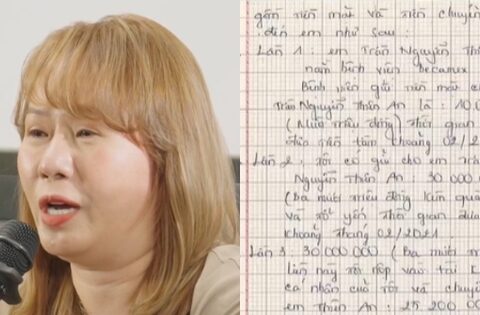 gồm tiền mặt và tiền chuyển
đến em như sau:
Lần 1: em Trần Nguyễn Thiên
nằm bệnh viện becamex
Bình
gửi tiền mặt c
Trần Nguyễn Thiên An là: 10.0
(Mười triệu đồng) thời gian
khoảng 02/2
Lần 2: tôi có gửi cho em Trầ
Nguyễn Thiên An: 30 000 0
(ba mươi triệu đồng
và thời gian đưa
khoảng tháng 02/2021
Lần 3: 30 000 000 (Ba mươi tr
lần này tôi nộp vào tài
cá nhân của tôi và chuyể
em Thiên An: 25 200 00